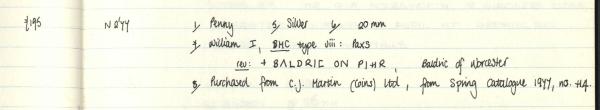 £195 N 844 1, Penny 5, Silver 6, 20 mm
7, William I, BMC type viii: Paxs
rev: + BALDRIC ON PIHR, Baldric of Worcester
8, Purchased from C.J. Martin (Coins) Ltd, from Spring Catalogue 1977, no. H4.